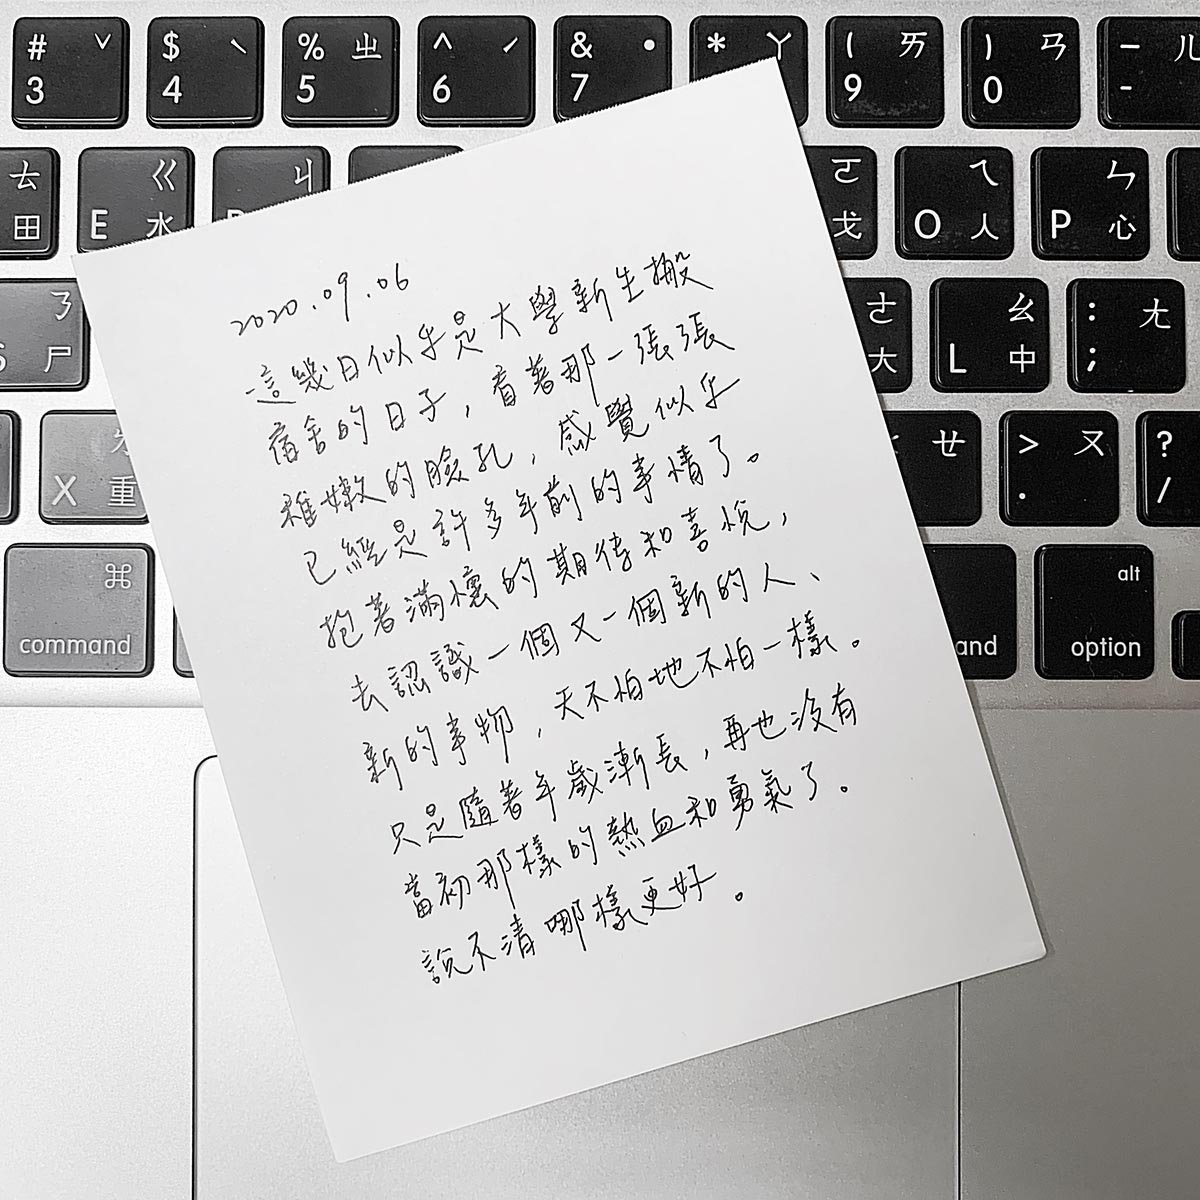 # ˇ 3
$ ˋ 4
% ㄓ 5
^ ˊ 6
& ˙ 7
* ㄚ
( ㄞ 9
) ㄢ 0
— ㄦ -
ㄊ 田
E ㄍ 水
ㄐ
ㄛ 戈
O ㄟ 人
P ㄣ 心
S ㄋ 尸
ㄜ 大
L ㄠ 中
: ㄤ ;
X ㄌ 重
ㄝ
> ㄡ .
? /
⌘ command
alt option
2020.09.06
這幾日似乎是大學新生搬
宿舍的日子，看著那一張張
稚嫩的臉孔，感覺似乎
已經是許多年前的事情了。
抱著滿懷的期待和喜悅，
去認識一個又一個新的人、
新的事物，天不怕地不怕一樣。
只是隨著年歲漸長，再也沒有
當初那樣的熱血和勇氣了。
說不清哪樣更好。